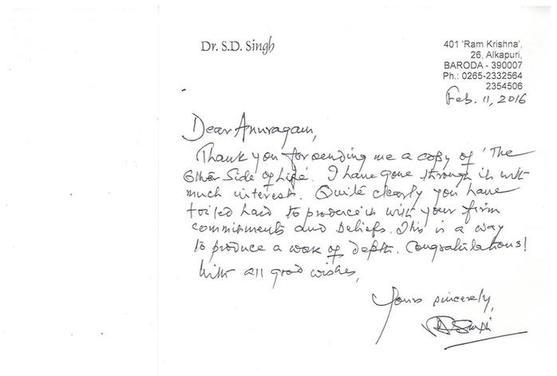 Dr. S.D. Singh
401 'Ram Krishna',
26, Alkapuri,
BARODA - 390007
Ph.: 0265-2332564
2354506
Feb. 11, 2016
Dear Anuragam,
Thank you for sending me a copy of 'The
Other Side of Life'. I have gone through it with
much interest. Quite clearly you have
toiled hard to produce it with your firm
commitments and beliefs. This is a way
to produce a work of depth. Congratulations!
With all good wishes,
Yours sincerely,